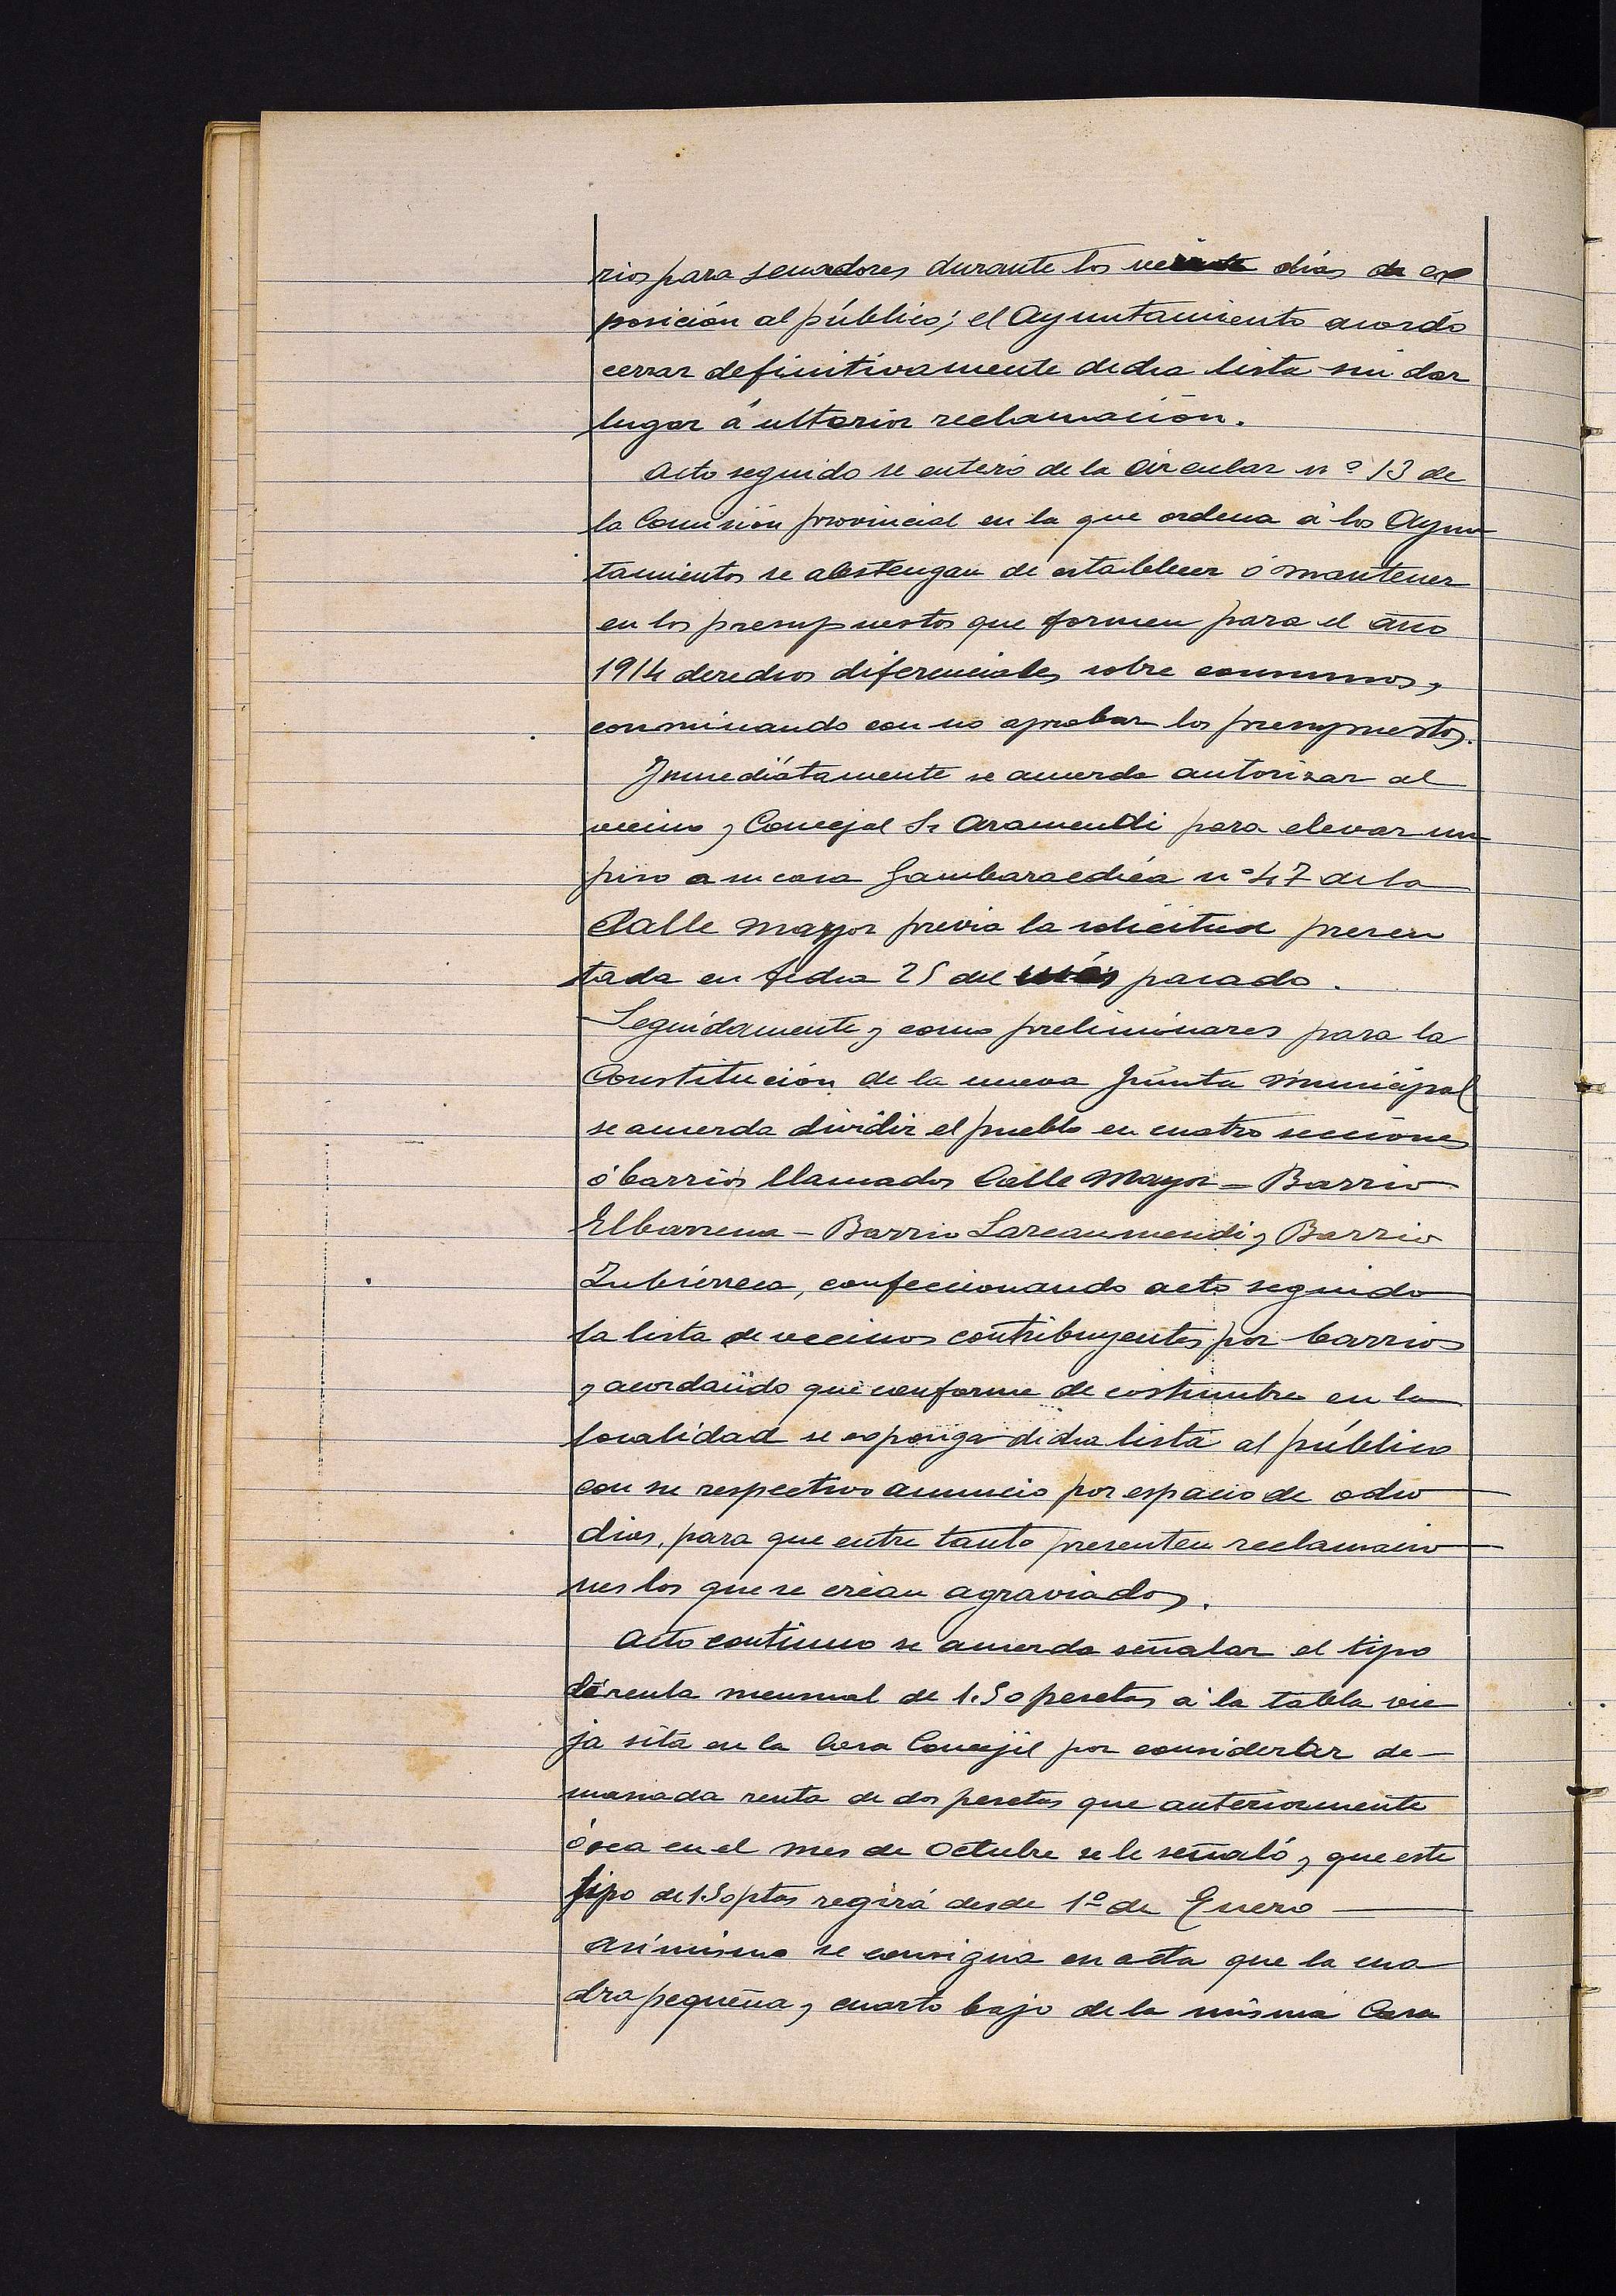 rios para senadores durante los veinte días de ex
posición al público; el Ayuntamiento acordó
cerrar definitivamente dicha lista sin dar
lugar á ulterior reclamación.
Acto seguido se enteró de la Circular nº 13 de
la Comisión provincial en la que ordena á los Ayun
tamientos se abstengan de establecer ó mantener
en los presupuestos que formen para el año
1914 derechos diferenciales sobre consumos,
conminando con no aprobar los presupuestos.
Inmediátamente se acuerda autorizar al
vecino y Concejal Sr Aramendi para elevar un
piso a su casa Gambaraechéa nº 47 de la
Calle Mayor previa la solicitud presen
tada en fecha 25 del més pasado.
Seguidamente y como preliminares para la
Constitución de la nueva Junta Municipal
se acuerda dividir el pueblo en cuatro secciones
ó barrios llamados Calle Mayor = Barrio
Elbarrena - Barrio Larcaumendi y Barrio
Zubierreca, confeccionando acto seguido
la lista de vecinos contribuyentes por barrios
y acordando que conforme de costumbre en la
localidad se exponga dicha lista al público
con su respectivo anuncio por espacio de ocho
dias, para que entre tanto presenten reclamacio
nes los que se crean agraviados.
Acto continuo se acuerda señalar el tipo
de renta mensual de 1.50 pesetas á la tabla vie
ja sita en la Casa Concejil por considerar de-
masiada renta de dos pesetas que anteriormente
ó sea en el mes de Octubre se le señaló y que este
tipo de 1.50 ptas regirá desde 1º de Enero
Asímismo se consigna en acta que la cua
dra pequeña y cuarto bajo de la misma Casa